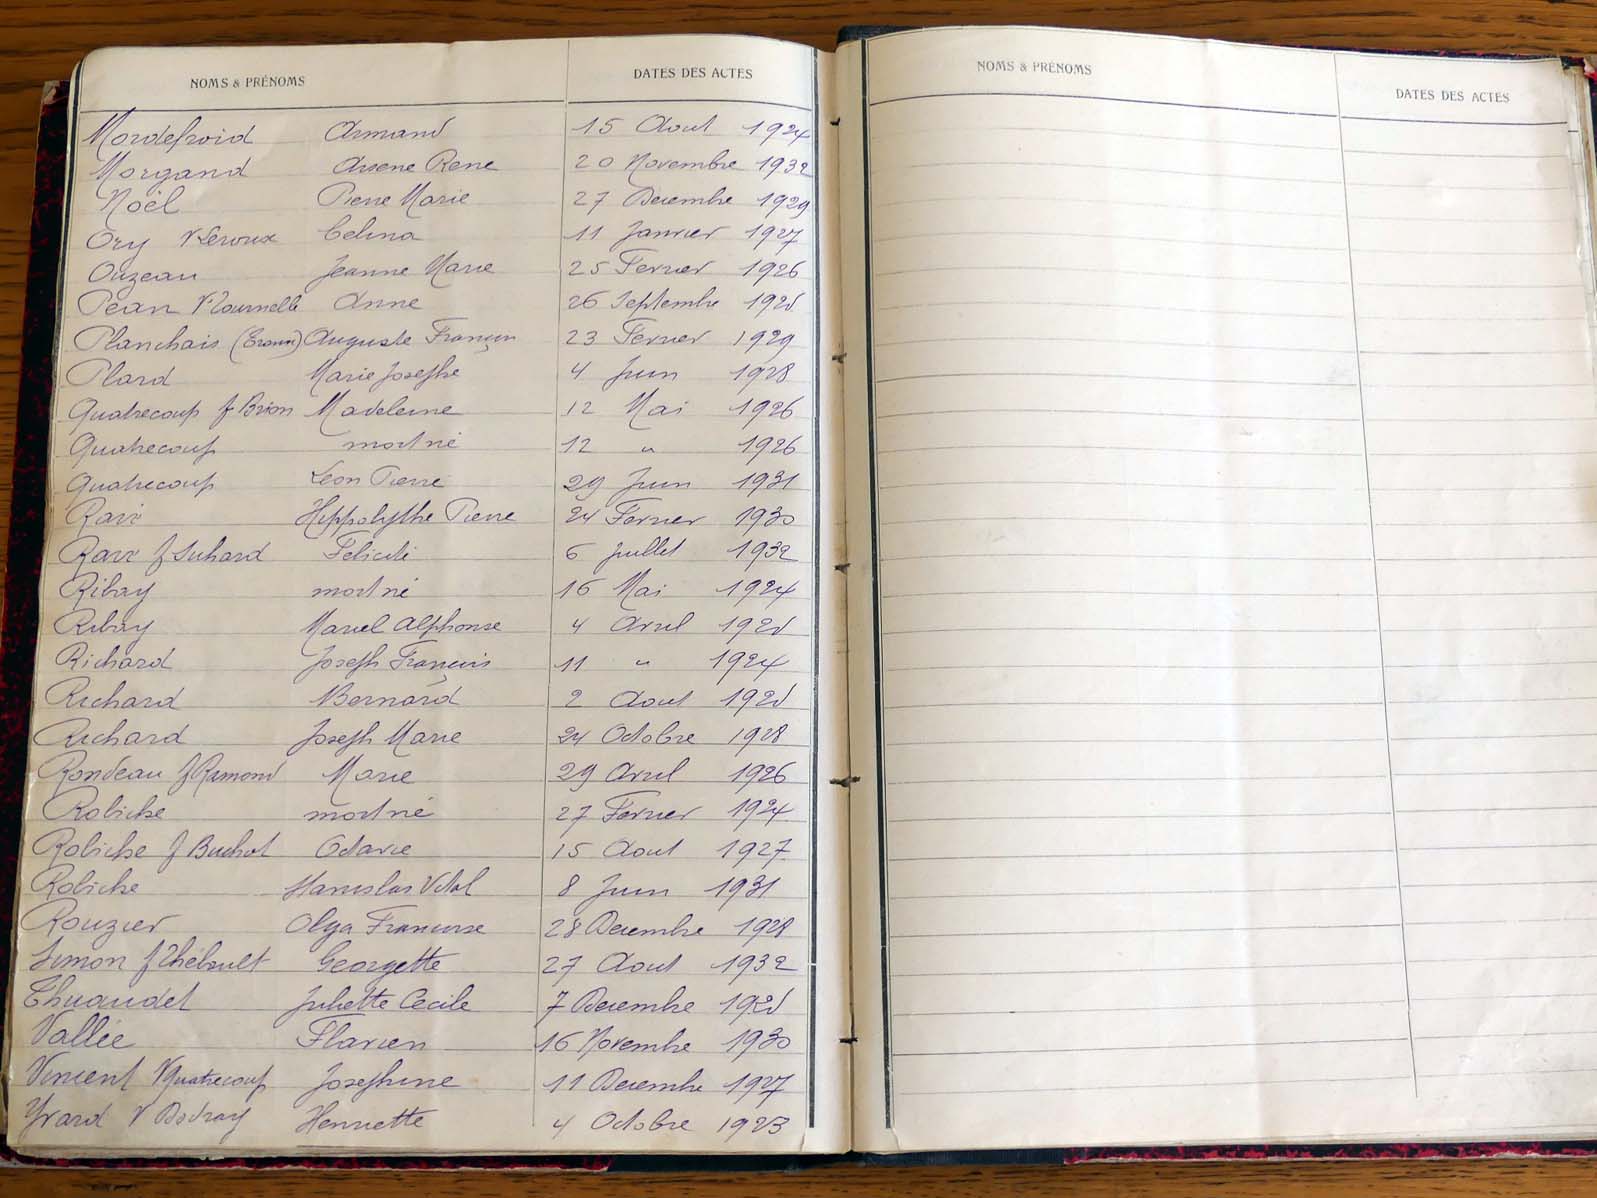 NOMS & PRÉNOMS DATES DES ACTES
Mordefroid Armand 15 Aout 1924
Morgand Arsene Rene 20 Novembre 1932
Noël Pierre Marie 27 Decembre 1929
Ory V Leroux Celina 11 Janvier 1927
Ouzeau Jeanne Marie 25 Fevrier 1926
Pean V Tournelle Anne 26 Septembre
Planchais Auguste François 23 Fevrier 1929
Plard Marie Josephe 4 Juin 1928
Quatrecoup f Brion Madeleine 12 Mai 1926
Quatrecoup mort né 12 " 1926
Quatrecoup Léon Pierre 29 Juin 1931
Ravé Hippolythe Pierre 24 Fevrier 1930
Ravé f Suhard Félicité 6 Juillet 1932
Ribay mort né 16 Mai 1924
Ribay Marcel Alphonse 4 Avril
Richard Joseph François 11 " 1924
Richard Bernard 2 Aout
Richard Joseph Marie 24 Octobre 1928
Rondeau f Ramond Marie 29 Avril 1926
Robiche mort né 27 Fevrier 1924
Robiche f Buchot Octavie 15 Aout 1927
Robiche Stanislas Vital 8 Juin 1931
Rouzier Olga Françoise 28 Decembre 1928
Simon f Thébault Georgette 27 Aout 1932
Thuaudet Juliette Cecile 7 Decembre
Vallée Flavien 16 Novembre 1930
Vincent V Quatrecoup Josephine 11 Decembre 1927
Yvard V Henriette 4 Octobre 1923
NOMS & PRÉNOMS DATES DES ACTES